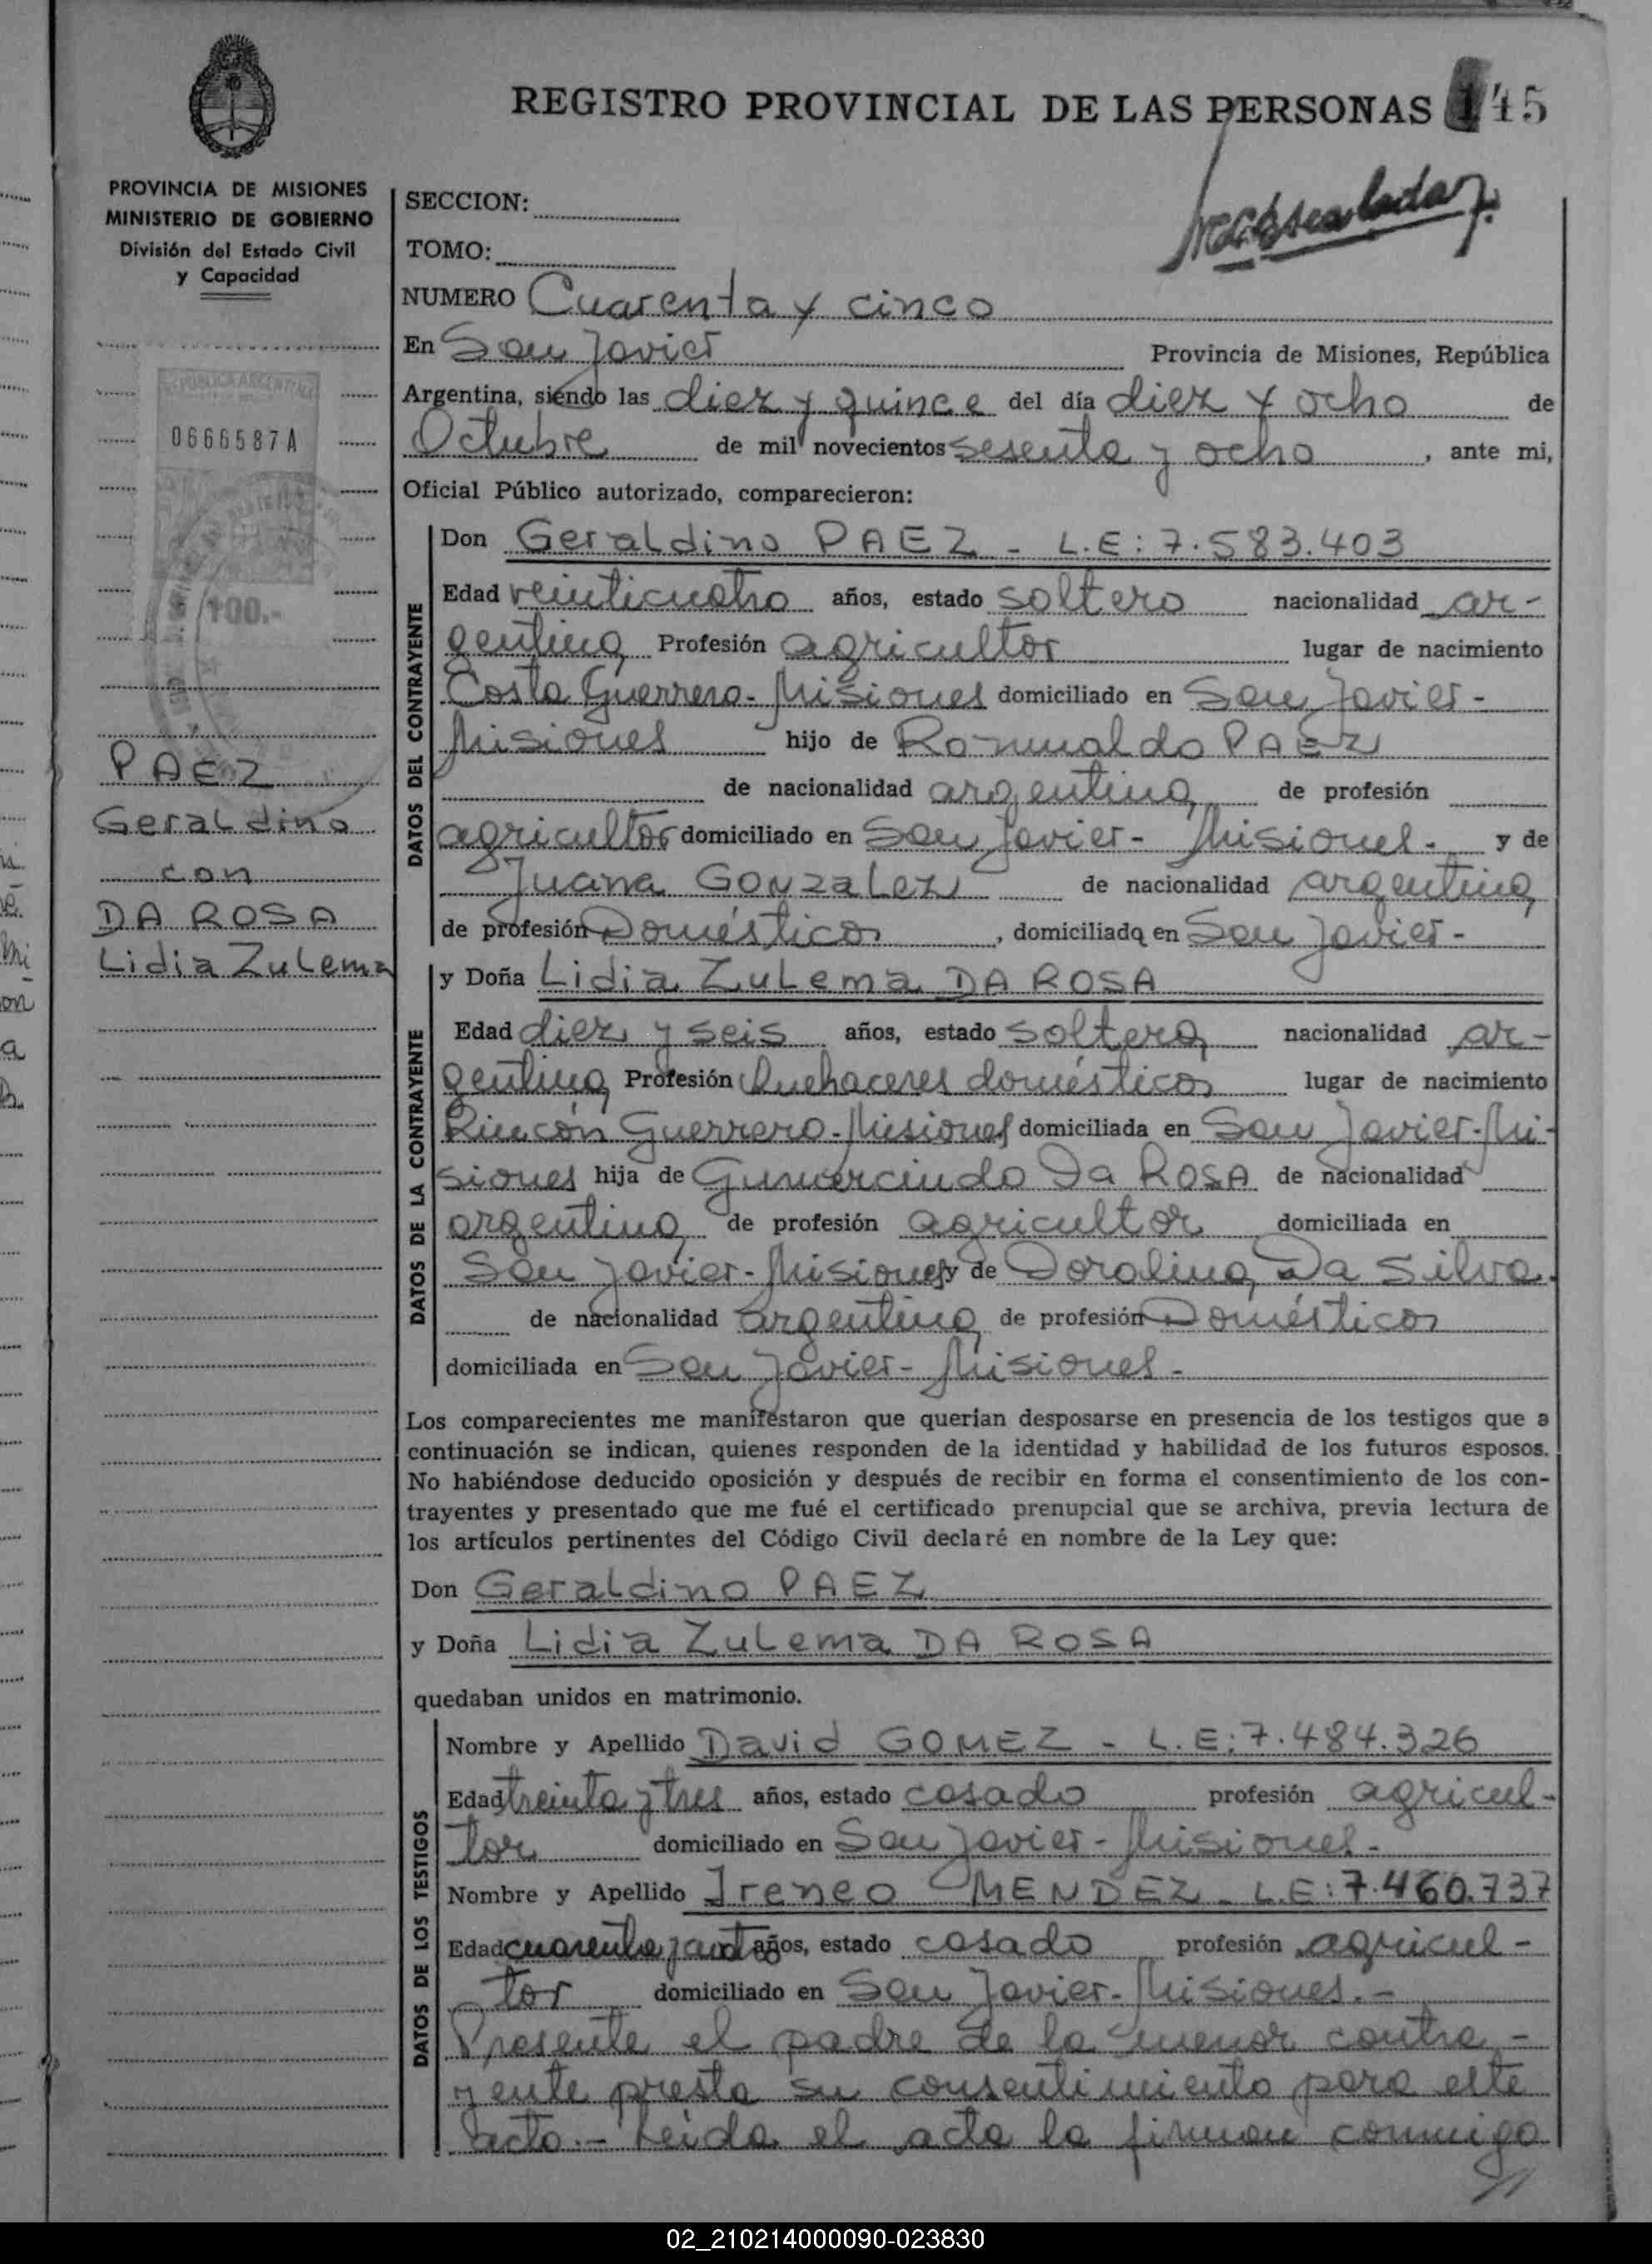 REGISTRO PROVINCIAL DE LAS PERSONAS 145
PROVINCIA DE MISIONES
MINISTERIO DE GOBIERNO
División del Estado Civil
y Capacidad
REPUBLICA ARGENTINA
0666587A
100.-
PAEZ
Geraldino
con
DA ROSA
Lidia Zulema
SECCION:
TOMO:
NUMERO Cuarenta y cinco
En San Javier Provincia de Misiones, República
Argentina, siendo las diez y quince del día diez y ocho de
Octubre de mil novecientos sesenta y ocho, ante mi,
Oficial Público autorizado, comparecieron:
DATOS DEL CONTRAYENTE
Don Geraldino PAEZ - L.E: 7.583.403
Edad veinticuatro años, estado soltero nacionalidad ar-
gentina Profesión agricultor lugar de nacimiento
Costa Guerrero-Misiones domiciliado en San Javier-
Misiones hijo de Romualdo PAEZ
de nacionalidad argentina de profesión
agricultor domiciliado en San Javier- Misiones- y de
Juana GONZALEZ de nacionalidad argentina
de profesión Domésticos, domiciliada en San Javier-
DATOS DE LA CONTRAYENTE
y Doña Lidia Zulema DA ROSA
Edad diez y seis años, estado soltera nacionalidad ar-
gentina Profesión Quehaceres domésticos lugar de nacimiento
Rincón Guerrero-Misiones domiciliada en San Javier-Mi-
siones hija de Gumercindo Da ROSA de nacionalidad
argentina de profesión agricultor domiciliada en
San Javier-Misiones y de Doralina Da Silva.
de nacionalidad argentina de profesión Domésticos
domiciliada en San Javier- Misiones-
Los comparecientes me manifestaron que querían desposarse en presencia de los testigos que a
continuación se indican, quienes responden de la identidad y habilidad de los futuros esposos.
No habiéndose deducido oposición y después de recibir en forma el consentimiento de los con-
trayentes y presentado que me fué el certificado prenupcial que se archiva, previa lectura de
los artículos pertinentes del Código Civil declaré en nombre de la Ley que:
Don Geraldino PAEZ
y Doña Lidia Zulema DA ROSA
quedaban unidos en matrimonio.
DATOS DE LOS TESTIGOS
Nombre y Apellido David GOMEZ - L.E: 7.484.326
Edad treinta y tres años, estado casado profesión agricul-
tor domiciliado en San Javier- Misiones-
Nombre y Apellido Ireneo MENDEZ - L.E: 7.460.737
Edad cuarenta y años, estado casado profesión agricul-
tor domiciliado en San Javier-Misiones.-
Presente el padre de la menor contra-
yente presta su consentimiento para este
acto.- Leida el acta la firman conmigo
02_210214000090-023830